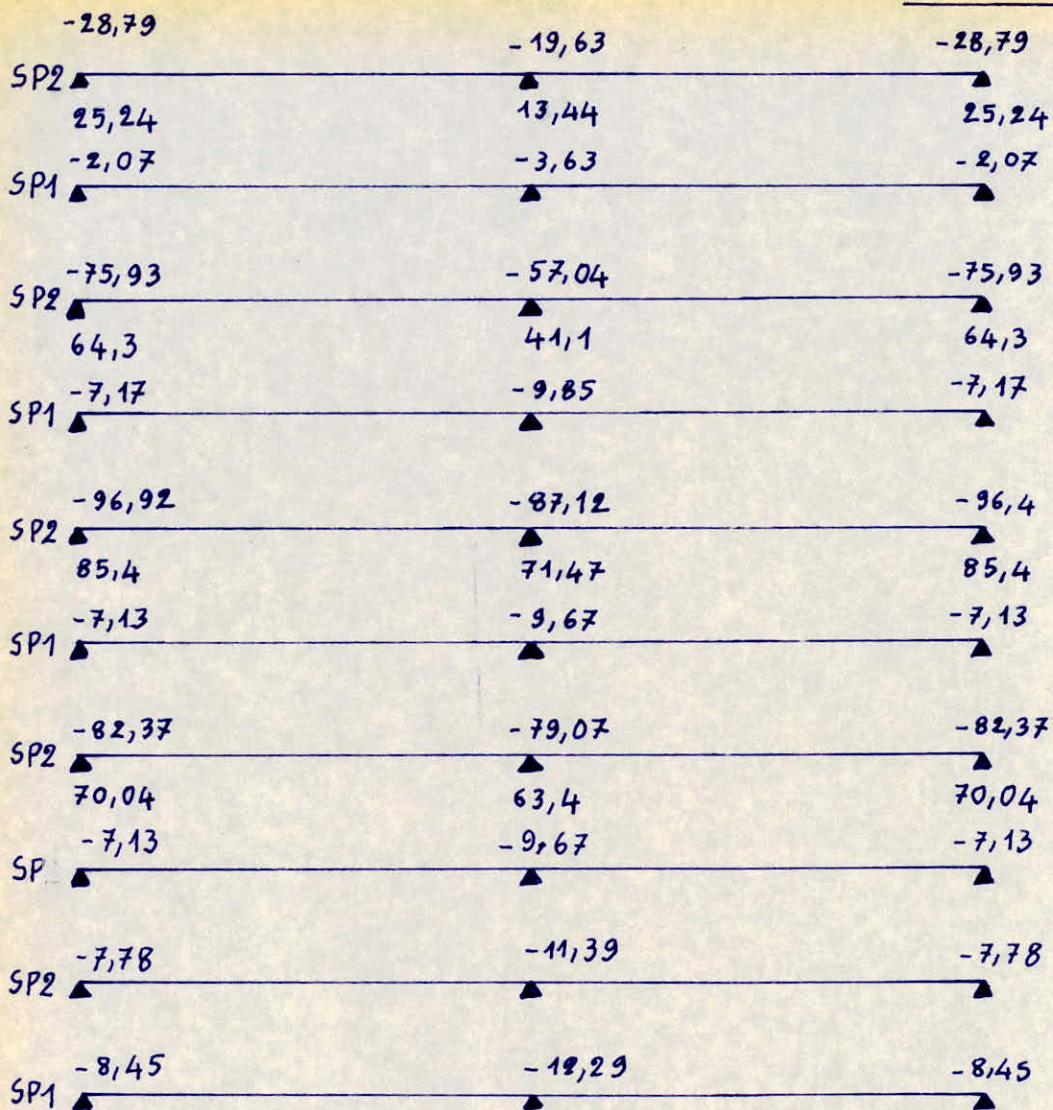 -28,79 -19,63 -28,79
SP2
25,24 13,44 25,24
-2,07 -3,63 -2,07
SP1
-75,93 -57,04 -75,93
SP2
64,3 41,1 64,3
-7,17 -9,85 -7,17
SP1
-96,92 -87,12 -96,4
SP2
85,4 71,47 85,4
-7,13 -9,67 -7,13
SP1
-82,37 -79,07 -82,37
SP2
70,04 63,4 70,04
-7,13 -9,67 -7,13
SP
-7,78 -11,39 -7,78
SP2
-8,45 -12,29 -8,45
SP1